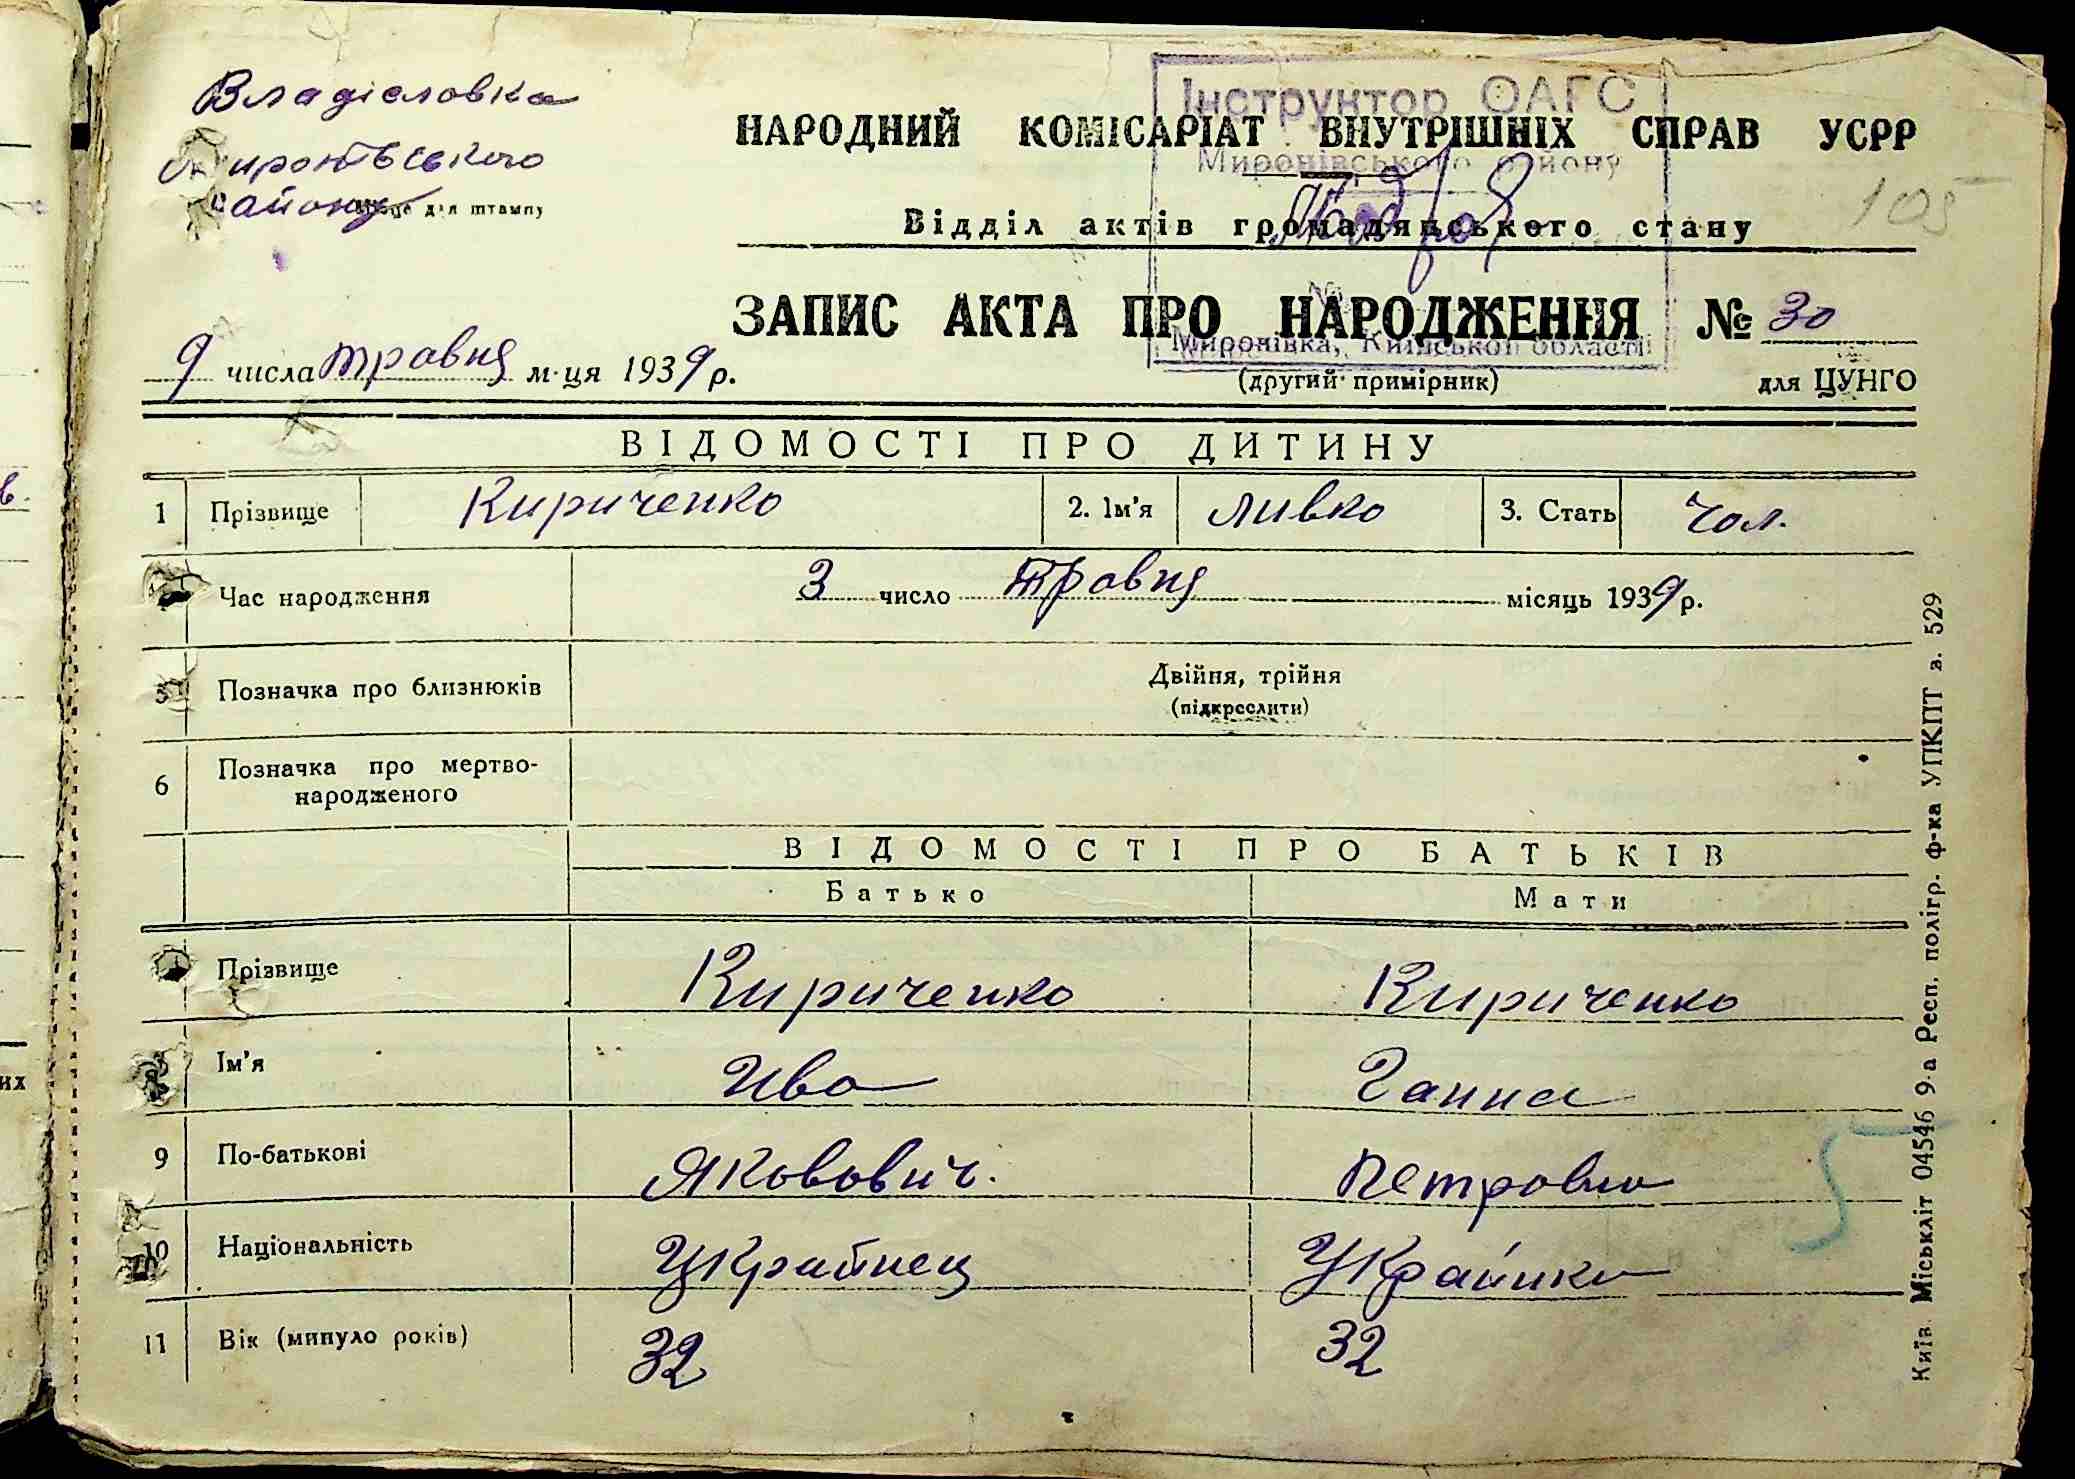 Владіславка
Миронівського
району
Місце для штампу
Інструктор ОАГС
Миронівського району
Миронівка, Київської області
НАРОДНИЙ КОМІСАРІАТ ВНУТРІШНІХ СПРАВ УСРР
105
Відділ актів громадянського стану
ЗАПИС АКТА ПРО НАРОДЖЕННЯ № 30
9 числа травня м-ця 1939 р.
(другий примірник)
для ЦУНГО
ВІДОМОСТІ ПРО ДИТИНУ
1 Прізвище Кириченко 2. Ім'я Ливко 3. Стать Чол.
Час народження 3 число травня місяць 1939 р.
5 Позначка про близнюків Двійня, трійня
(підкреслити)
6 Позначка про мертво-
народженого
ВІДОМОСТІ ПРО БАТЬКІВ
Батько Мати
Прізвище Кириченко Кириченко
Ім'я Ива Ганна
9 По-батькові Яковович. Петровна
10 Національність Украйнец Украйнка
11 Вік (минуло років) 32 32
5
Київ. Міськліт 04546 9-а Респ. полігр. ф-ка УПКПТ з. 529
их